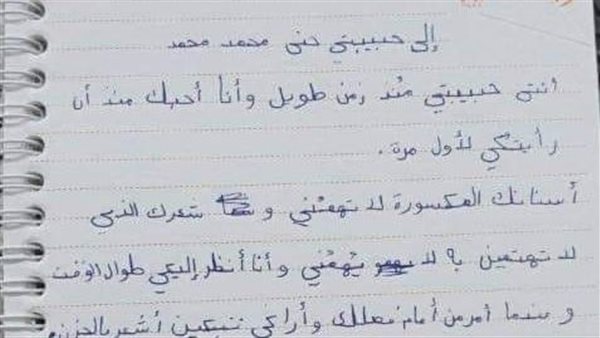 إلى حبيبتي حنى محمد محمد
انتى حبيبتي منذ زمن طويل وأنا أحبك منذ أن
رأيتكي لأول مرة .
أسنانك المكسورة لا تهمني و شعرك الذي
لا تهتمين به لا يهمني وأنا أنظر إليكي طوال الوقت
وعندما أمر من أمام فصلك وأراكي تبكين أشعر بالحزن.